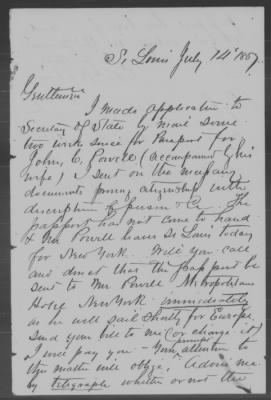 St Louis July 14th 1867.
Gentlemen
I made application to
Secretary of State by mail some
two weeks since for Passport for
John, C, Powell (accompanied by his
wife) & sent on the necessary
documents proving citizenship with
description of person &c. The
passport has not come to hand
& Mr Powell leaves St Louis today
for New York. Will you call
and direct that the passport be
sent to Mr Powell Metropolitan
Hotel New York immediately
as he will sail shortly for Europe.
Send your bill to me (or charge it)
I will pay you - Your prompt attention to
this matter will oblige. Advise me
by telegraph whether or not the